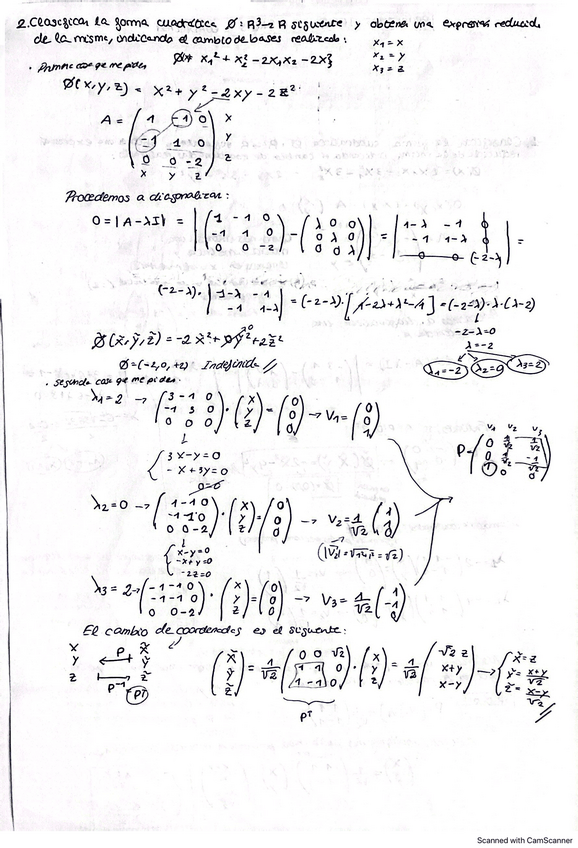 2. Clasificar la forma cuadrática Ø: R³→R siguiente y obtener una expresión reducida
de la misma, indicando el cambio de bases realizado:
x₁ = x
x₂ = y
x₃ = z
x₁² + x₂² - 2x₁x₂ - 2x₃²
· Primera cosa que me piden
Ø(x,y,z) = x² + y² - 2xy - 2z²
A = ( 1 -1 0 ) x
( -1 1 0 ) y
( 0 0 -2 ) z
x y z
Procedemos a diagonalizar:
0 = |A-λI| = | ( 1 -1 0 / -1 1 0 / 0 0 -2 ) - ( λ 0 0 / 0 λ 0 / 0 0 λ ) | = | 1-λ -1 0 / -1 1-λ 0 / 0 0 (-2-λ) | =
(-2-λ)· | 1-λ -1 / -1 1-λ | = (-2-λ)·[1-2λ+λ²-1] = (-2-λ)·λ·(λ-2)
-2-λ=0
λ=-2
Ø(x̃,ỹ,z̃) = -2x̃² + 0ỹ² + 2z̃²
0
Ø = (-2,0,+2) Indefinida //
λ₁=-2 λ₂=0 λ₃=2
· Segunda cosa que me piden.
λ₁=2 → ( 3 -1 0 / -1 3 0 / 0 0 0 ) · ( x / y / z ) = ( 0 / 0 / 0 ) → V₁ = ( 0 / 0 / 1 )
3x-y=0
-x+3y=0
0=0
V₁ V₂ V₃
P = ( 0 1/√2 1/√2 / 0 1/√2 -1/√2 / 1 0 0 )
λ₂=0 → ( 1 -1 0 / -1 1 0 / 0 0 -2 ) · ( x / y / z ) = ( 0 / 0 / 0 ) → V₂ = 1/√2 ( 1 / 1 / 0 )
x-y=0
-x+y=0
-2z=0
(|V₂| = √1²+1² = √2)
λ₃=2 → ( -1 -1 0 / -1 -1 0 / 0 0 -2 ) · ( x / y / z ) = ( 0 / 0 / 0 ) → V₃ = 1/√2 ( 1 / -1 / 0 )
El cambio de coordenadas es el siguiente:
x P x̃
y ← ỹ
z → z̃
P⁻¹ Pᵀ
( x̃ / ỹ / z̃ ) = 1/√2 ( 0 0 √2 / 1 1 0 / 1 -1 0 ) · ( x / y / z ) = 1/√2 ( √2 z / x+y / x-y ) → x̃=z
ỹ = x+y/√2
z̃ = x-y/√2 //
Pᵀ
Scanned with CamScanner